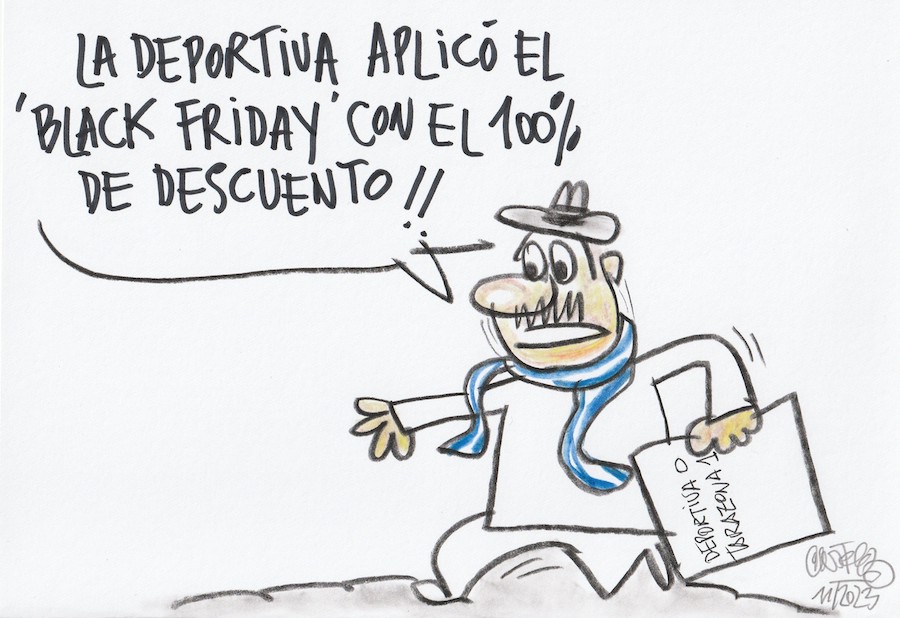 LA DEPORTIVA APLICÓ EL
'BLACK FRIDAY' CON EL 100%
DE DESCUENTO!!
DEPORTIVA 0
TARAZONA 1
11/2023